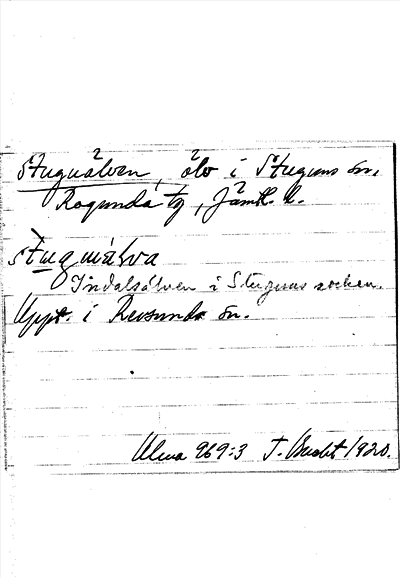 Stuguälven, älv i Stuguns sn,
Ragunda tg, Jämtl. l.
Indalsälven i Stuguns socken.
Uppt. i Revsunds sn.
Ulma 969:3 1920.